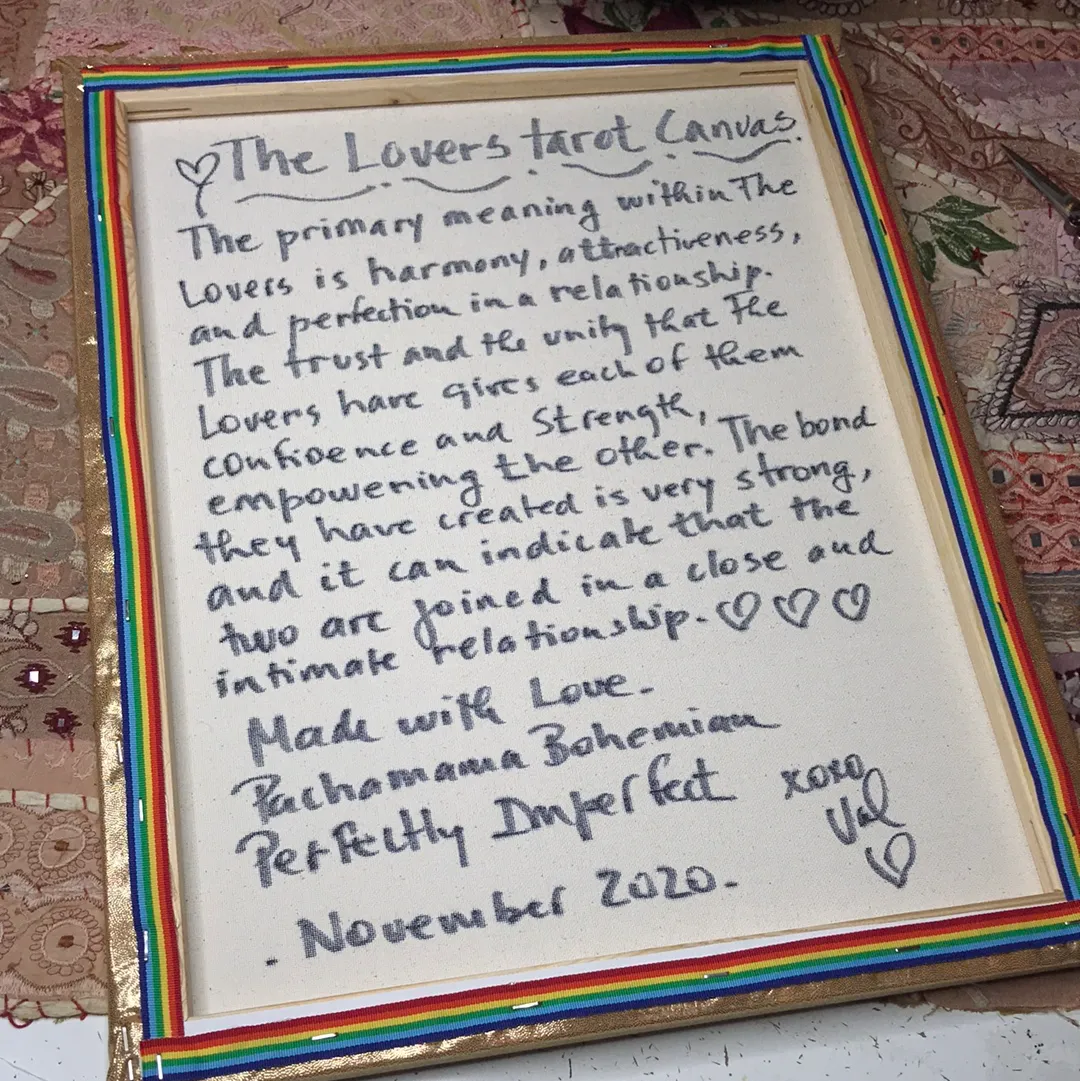 The Lovers tarot Canvas.
The primary meaning within The
Lovers is harmony, attractiveness,
and perfection in a relationship.
The trust and the unity that The
Lovers have gives each of them
confidence and strength,
empowering the other. The bond
they have created is very strong,
and it can indicate that the
two are joined in a close and
intimate relationship. ♡♡♡
Made with Love.
Pachamama Bohemian
Perfectly Imperfect
xoxo
Val
November 2020.